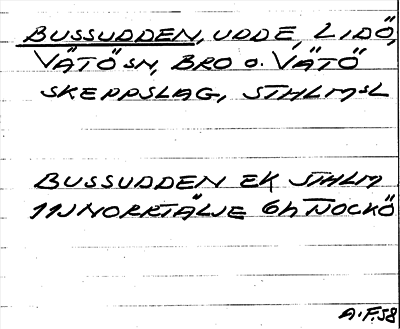 BUSSUDDEN, UDDE, LIDÖ,
VÄTÖ SN, BRO O. VÄTÖ
SKEPPSLAG, STHLMSL
BUSSUDDEN EK STHLM
11J NORRTÄLJE 6h NOCKÖ
A.F.58